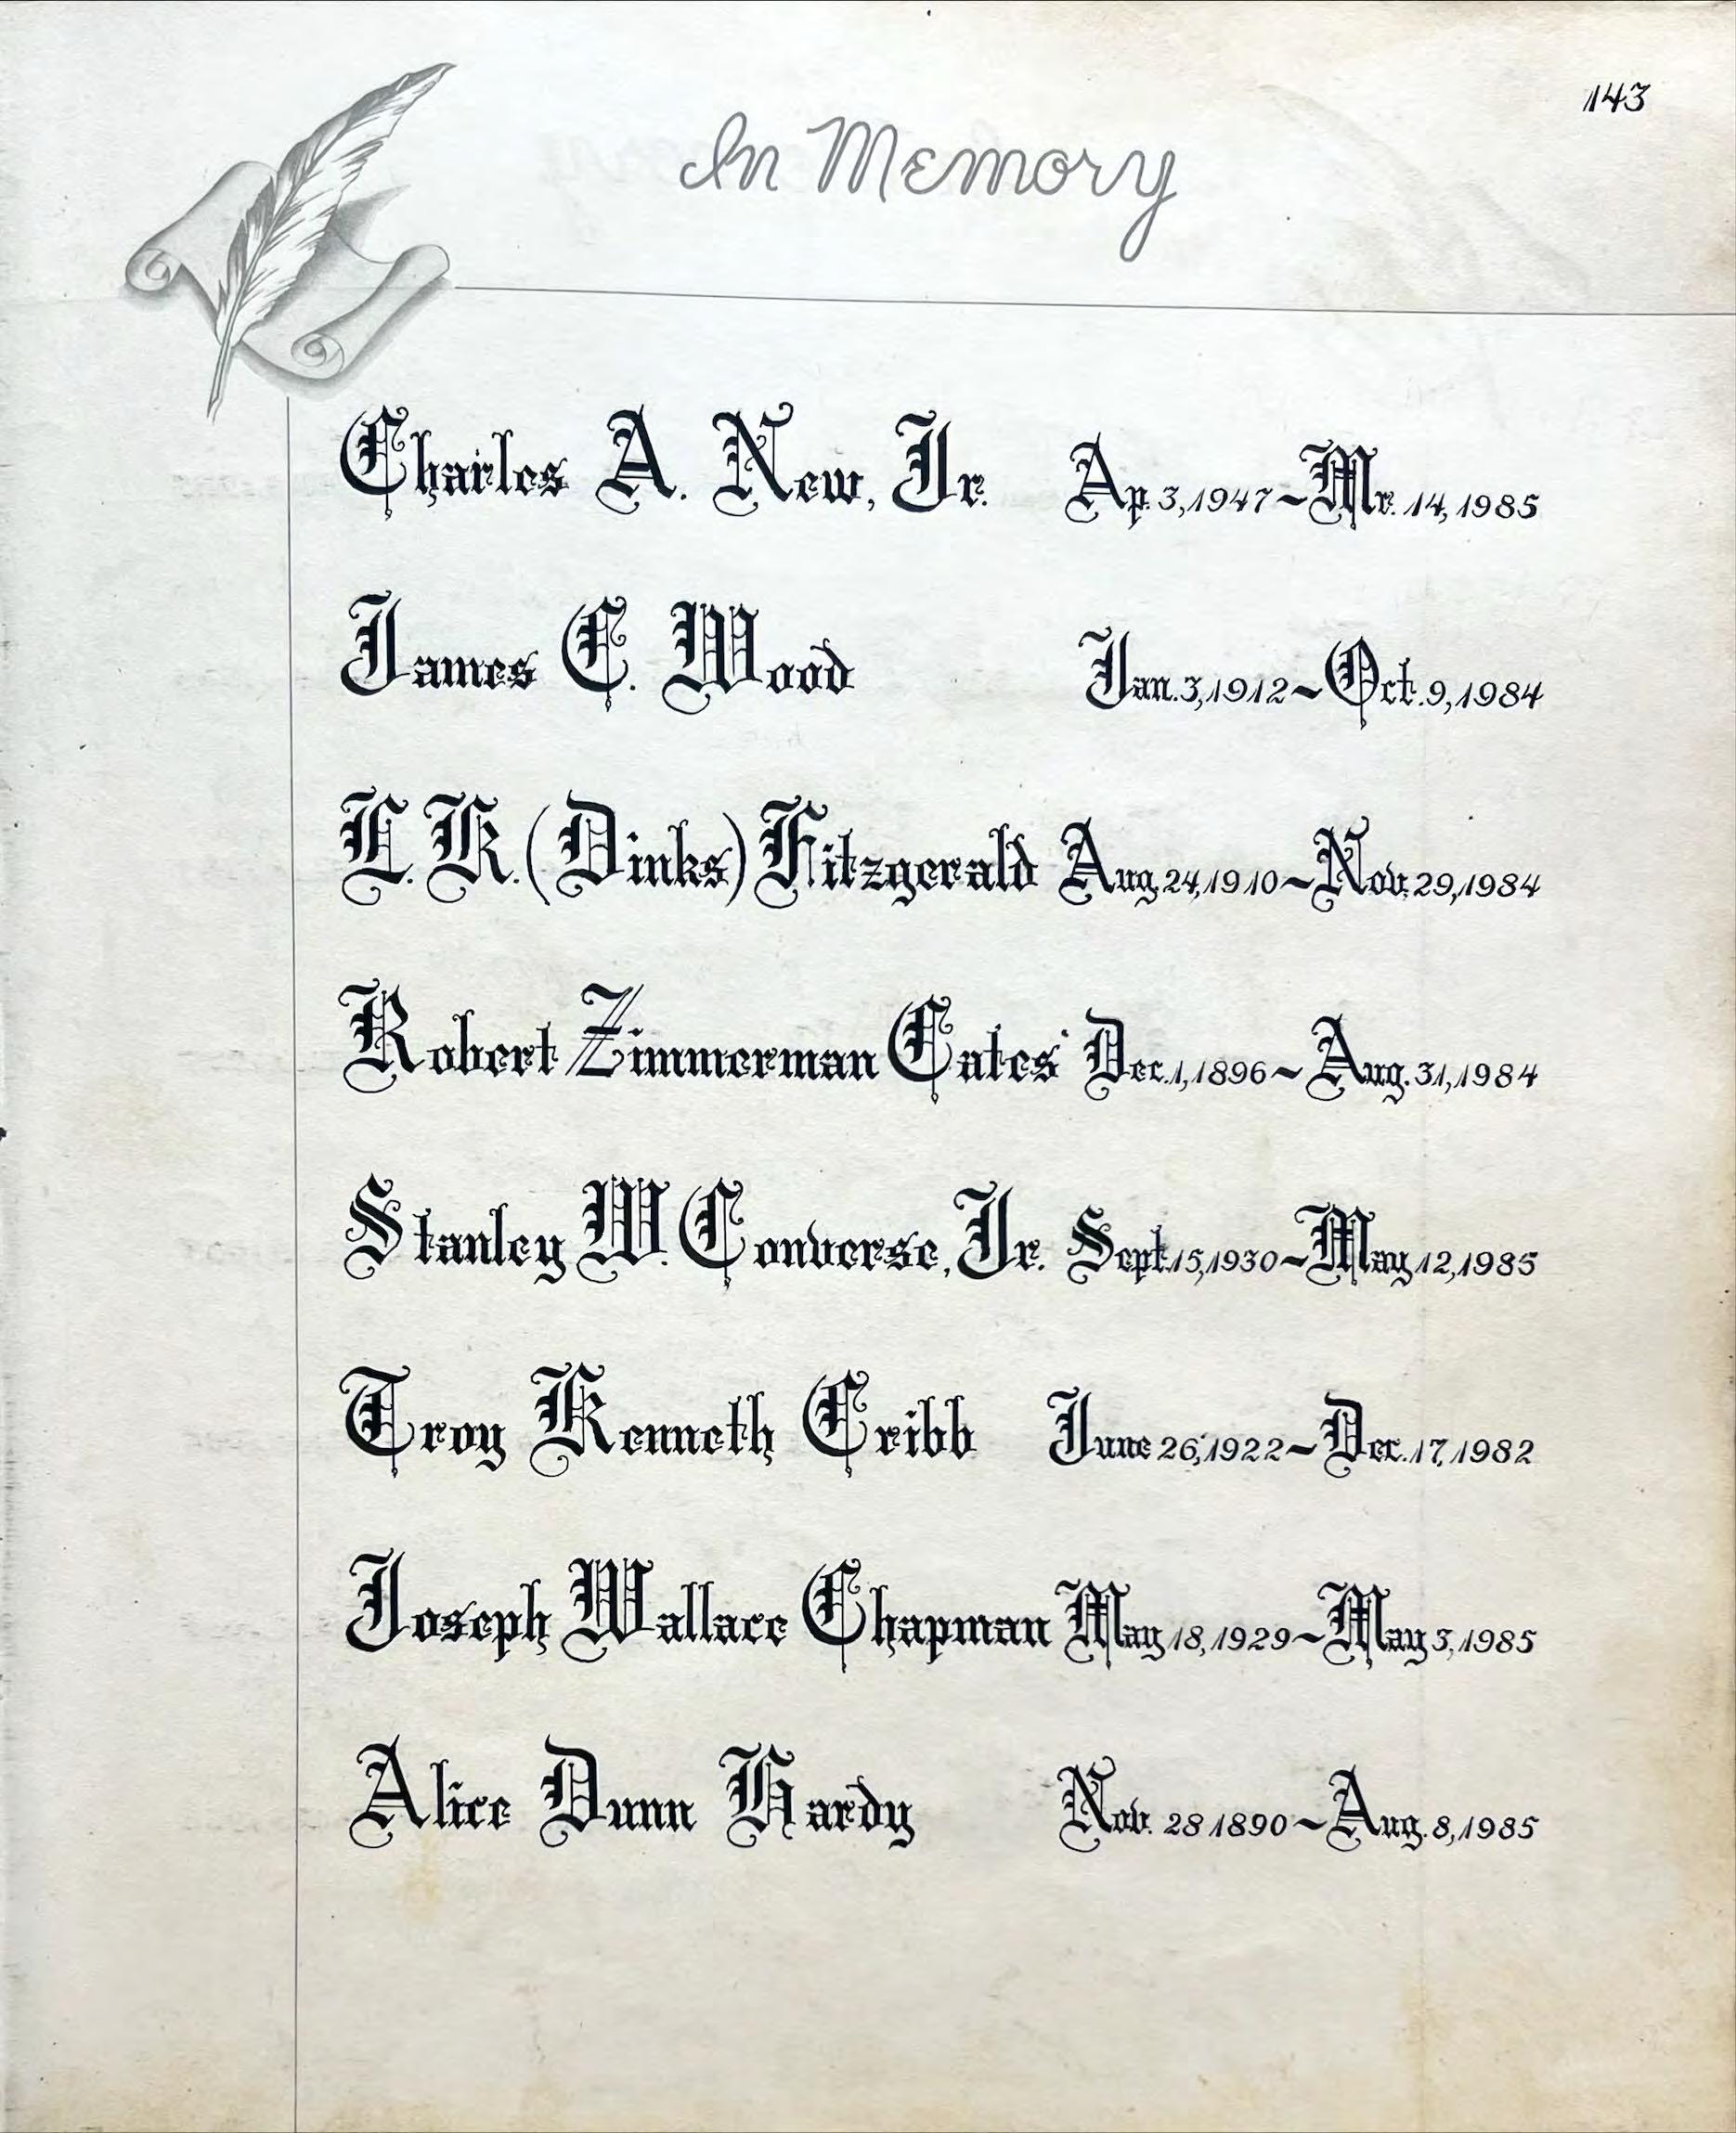 143
In Memory
Charles A. New, Jr. Ap. 3, 1947 ~ Mr. 14, 1985
James C. Wood Jan. 3, 1912 ~ Oct. 9, 1984
L. K. (Dinks) Fitzgerald Aug. 24, 1910 ~ Nov. 29, 1984
Robert Zimmerman Cates Dec. 1, 1896 ~ Aug. 31, 1984
Stanley W. Converse, Jr. Sept. 15, 1930 ~ May 12, 1985
Troy Kenneth Cribb June 26, 1922 ~ Dec. 17, 1982
Joseph Wallace Chapman May 18, 1929 ~ May 3, 1985
Alice Dunn Hardy Nov. 28 1890 ~ Aug. 8, 1985